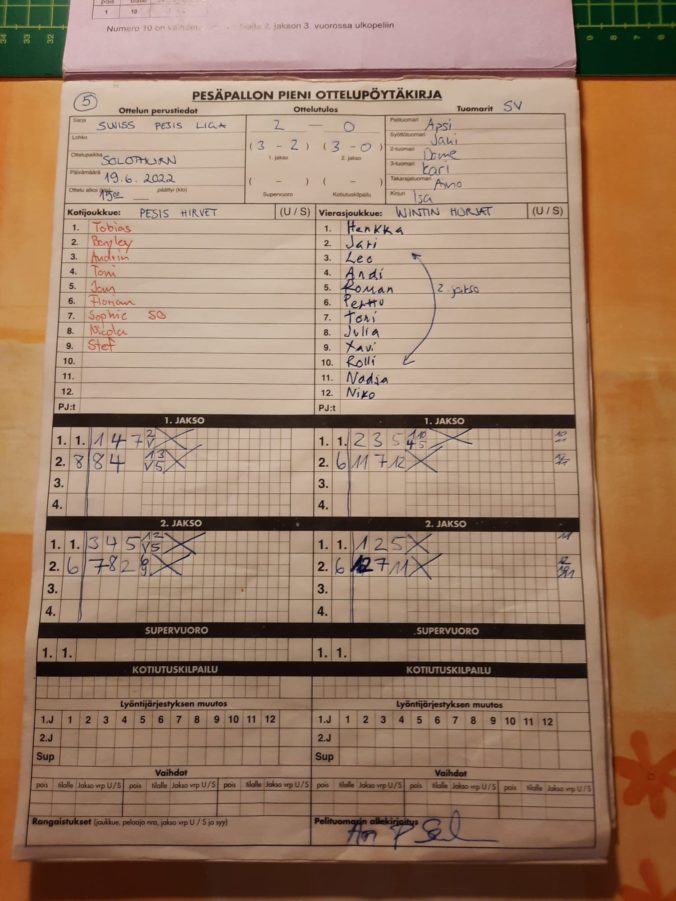 pois
1 10
Numero 10 on vaihdettu 2. jakson 3. vuorossa ulkopeliin
5
PESÄPALLON PIENI OTTELUPÖYTÄKIRJA
Ottelun perustiedot Ottelutulos Tuomarit SV
Sarja SWISS PESIS LIGA 2 — 0 Pelituomari Apsi
Lohko (3 - 2) (3 - 0) Syöttötuomari Jani
1. jakso 2. jakso 2-tuomari Dome
Ottelupaikka SOLOTHURN 3-tuomari Kari
Päivämäärä 19.6.2022 ( - ) ( - ) Takarajatuomari Arno
Ottelu alkoi (klo) 15 00 päättyi (klo) Supervuoro Kotiutuskilpailu Kirjuri Isa
Kotijoukkue: PESIS HIRVET (U / S) Vierasjoukkue: WINTIN HURJAT (U / S)
1. Tobias 1. Henkka
2. 2. Jari
3. Andrin 3. Leo
4. Toni 4. Andi
5. 5. Roman
6. Florian 6. Perttu
7. Sophie SB 7. Toni
8. Nicola 8. Julia
9. Stef 9. Xavi
10. 10. Rolli
11. 11. Nadja
12. 12. Niko
2. jakso
PJ:t PJ:t
1. JAKSO 1. JAKSO
1. 1. 1 4 7 1. 1. 2 3 5
2. 8 8 4 2. 6 11 7 12
3. 3.
4. 4.
2. JAKSO 2. JAKSO
1. 1. 3 4 5 1. 1. 1 2 5
2. 6 7 8 2 2. 6 12 7 11
3. 3.
4. 4.
SUPERVUORO SUPERVUORO
1. 1. 1. 1.
KOTIUTUSKILPAILU KOTIUTUSKILPAILU
Lyöntijärjestyksen muutos Lyöntijärjestyksen muutos
1.J 1 2 3 4 5 6 7 8 9 10 11 12 1.J 1 2 3 4 5 6 7 8 9 10 11 12
2.J 2.J
Sup Sup
Vaihdot Vaihdot
pois tilalle Jakso vrp U / S pois tilalle Jakso vrp U / S pois tilalle Jakso vrp U / S pois tilalle Jakso vrp U / S pois tilalle Jakso vrp U / S pois tilalle Jakso vrp U / S
Rangaistukset (joukkue, pelaaja nro, jakso vrp U / S ja syy) Pelituomarin allekirjoitus